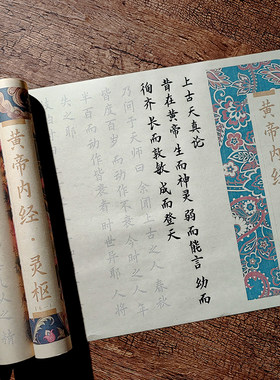 黄帝内经
上古天真论
昔在黄帝 生而神灵 弱而能言 幼而
徇齐 长而敦敏 成而登天
乃问于天师曰 余闻上古之人 春秋
皆度百岁 而动作不衰 今时之人 年
半百而动作皆衰者 时世异耶 人将
失之耶
黄帝内经·灵枢